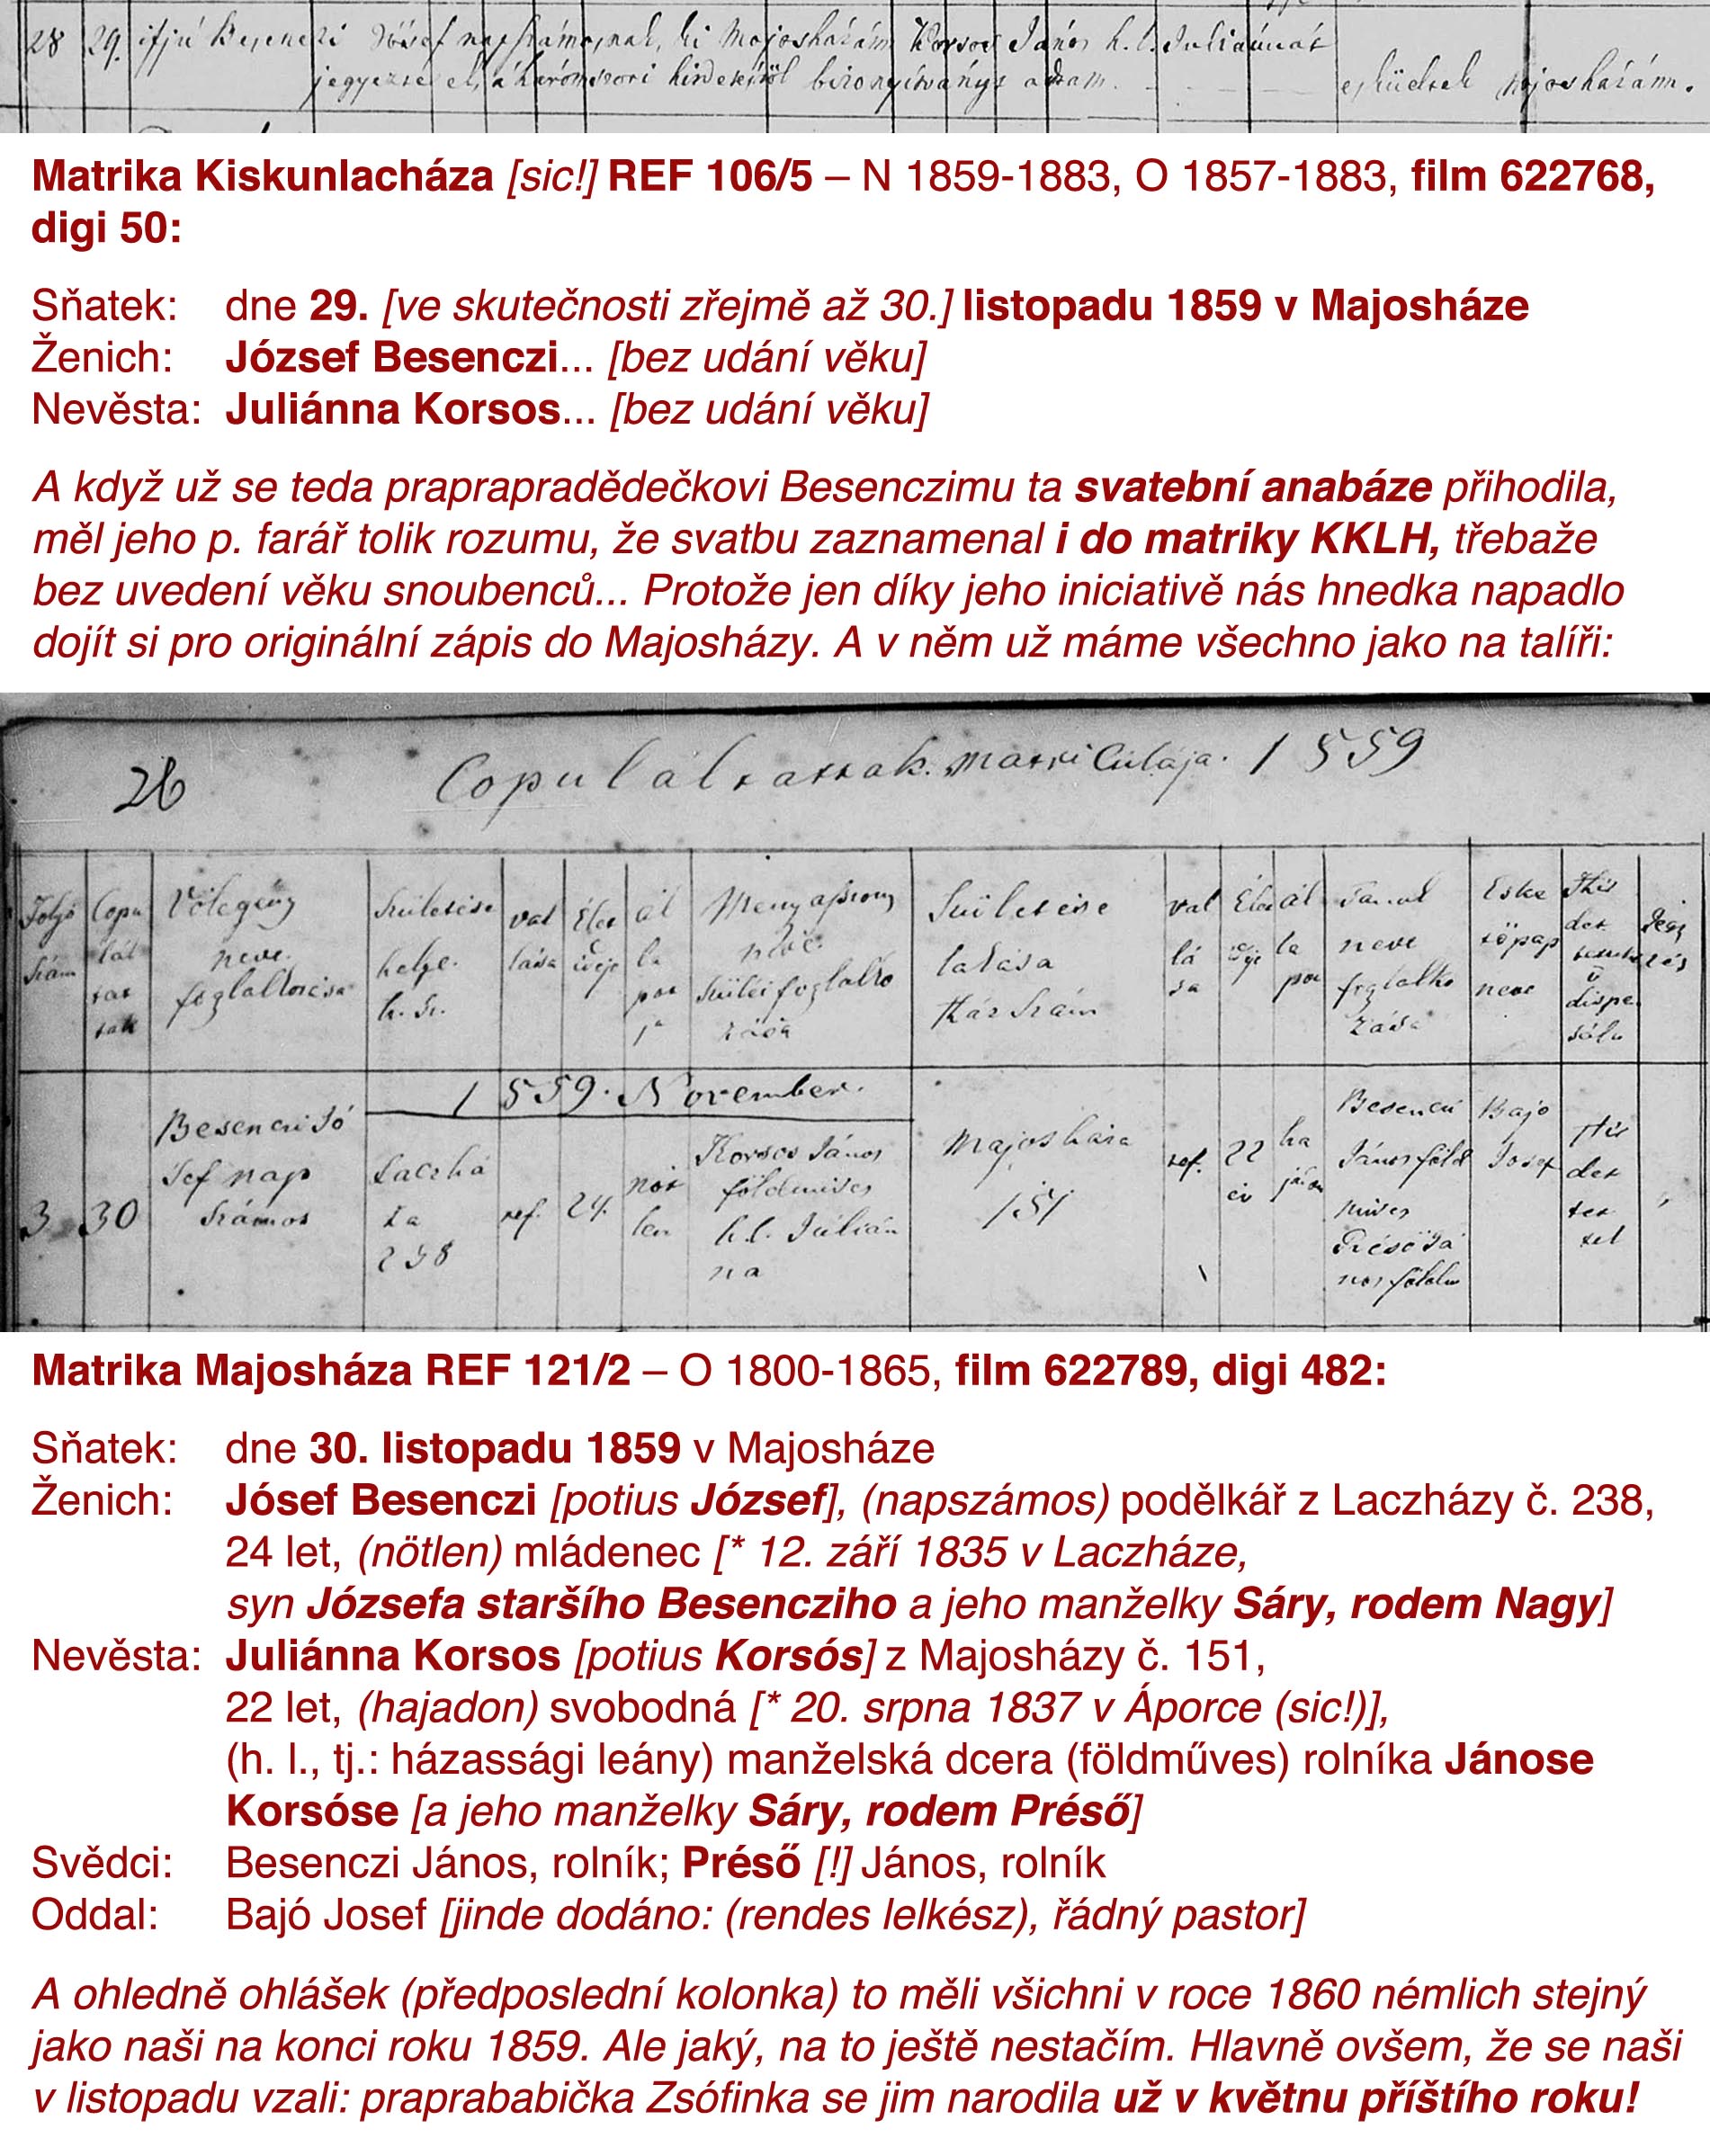 28 29. ifjú Besenczi Jósef napszámosnak, ki Majosházán Korsos János h. l. Juliánnát
jegyezte el, a háromszori hirdetésről bizonyítványt adtam. esküdtek Majosházán.
Matrika Kiskunlacháza [sic!] REF 106/5 – N 1859-1883, O 1857-1883, film 622768,
digi 50:
Sňatek: dne 29. [ve skutečnosti zřejmě až 30.] listopadu 1859 v Majosháze
Ženich: József Besenczi... [bez udání věku]
Nevěsta: Juliánna Korsos... [bez udání věku]
A když už se teda praprapradědečkovi Besenczimu ta svatební anabáze přihodila,
měl jeho p. farář tolik rozumu, že svatbu zaznamenal i do matriky KKLH, třebaže
bez uvedení věku snoubenců... Protože jen díky jeho iniciativě nás hnedka napadlo
dojít si pro originální zápis do Majosházy. A v něm už máme všechno jako na talíři:
26 Copuláltattak matriculája. 1859
Folyó
szám
Copu
lál
tat
tak
Völegény
neve
foglaltozása
Születése
helye.
h. sz.
val
lása
Élet
ideje
ál
la
pot
ja
Menyaszony
neve
Szülei foglalko
zása
Születése
lakása
Házszám
val
lá
sa
Élet
ideje
ál
la
pot
Tanuk
neve
foglalko
zása
Eske
töpap
neve
Hir
det
tettek
v
dispe.
sálv
Jegy
zés
1859. November.
3 30
Besenczi Jó
sef nap
számos
Laczhá
za
238
ref.
24.
nöt
len
Korsos János
földmives
h. l. Júlián
na
Majosháza
151
ref.
22
év
ha
jadon
Besenczi
János föld
mives
Présö Já
nos földm
Bajo
Josef
Hir
det
tet
tek
Matrika Majosháza REF 121/2 – O 1800-1865, film 622789, digi 482:
Sňatek: dne 30. listopadu 1859 v Majosháze
Ženich: Jósef Besenczi [potius József], (napszámos) podělkář z Laczházy č. 238,
24 let, (nötlen) mládenec [* 12. září 1835 v Laczháze,
syn Józsefa staršího Besencziho a jeho manželky Sáry, rodem Nagy]
Nevěsta: Juliánna Korsos [potius Korsós] z Majosházy č. 151,
22 let, (hajadon) svobodná [* 20. srpna 1837 v Áporce (sic!)],
(h. l., tj.: házassági leány) manželská dcera (földműves) rolníka Jánose
Korsóse [a jeho manželky Sáry, rodem Préső]
Svědci: Besenczi János, rolník; Préső [!] János, rolník
Oddal: Bajó Josef [jinde dodáno: (rendes lelkész), řádný pastor]
A ohledně ohlášek (předposlední kolonka) to měli všichni v roce 1860 némlich stejný
jako naši na konci roku 1859. Ale jaký, na to ještě nestačím. Hlavně ovšem, že se naši
v listopadu vzali: praprababička Zsófinka se jim narodila už v květnu příštího roku!